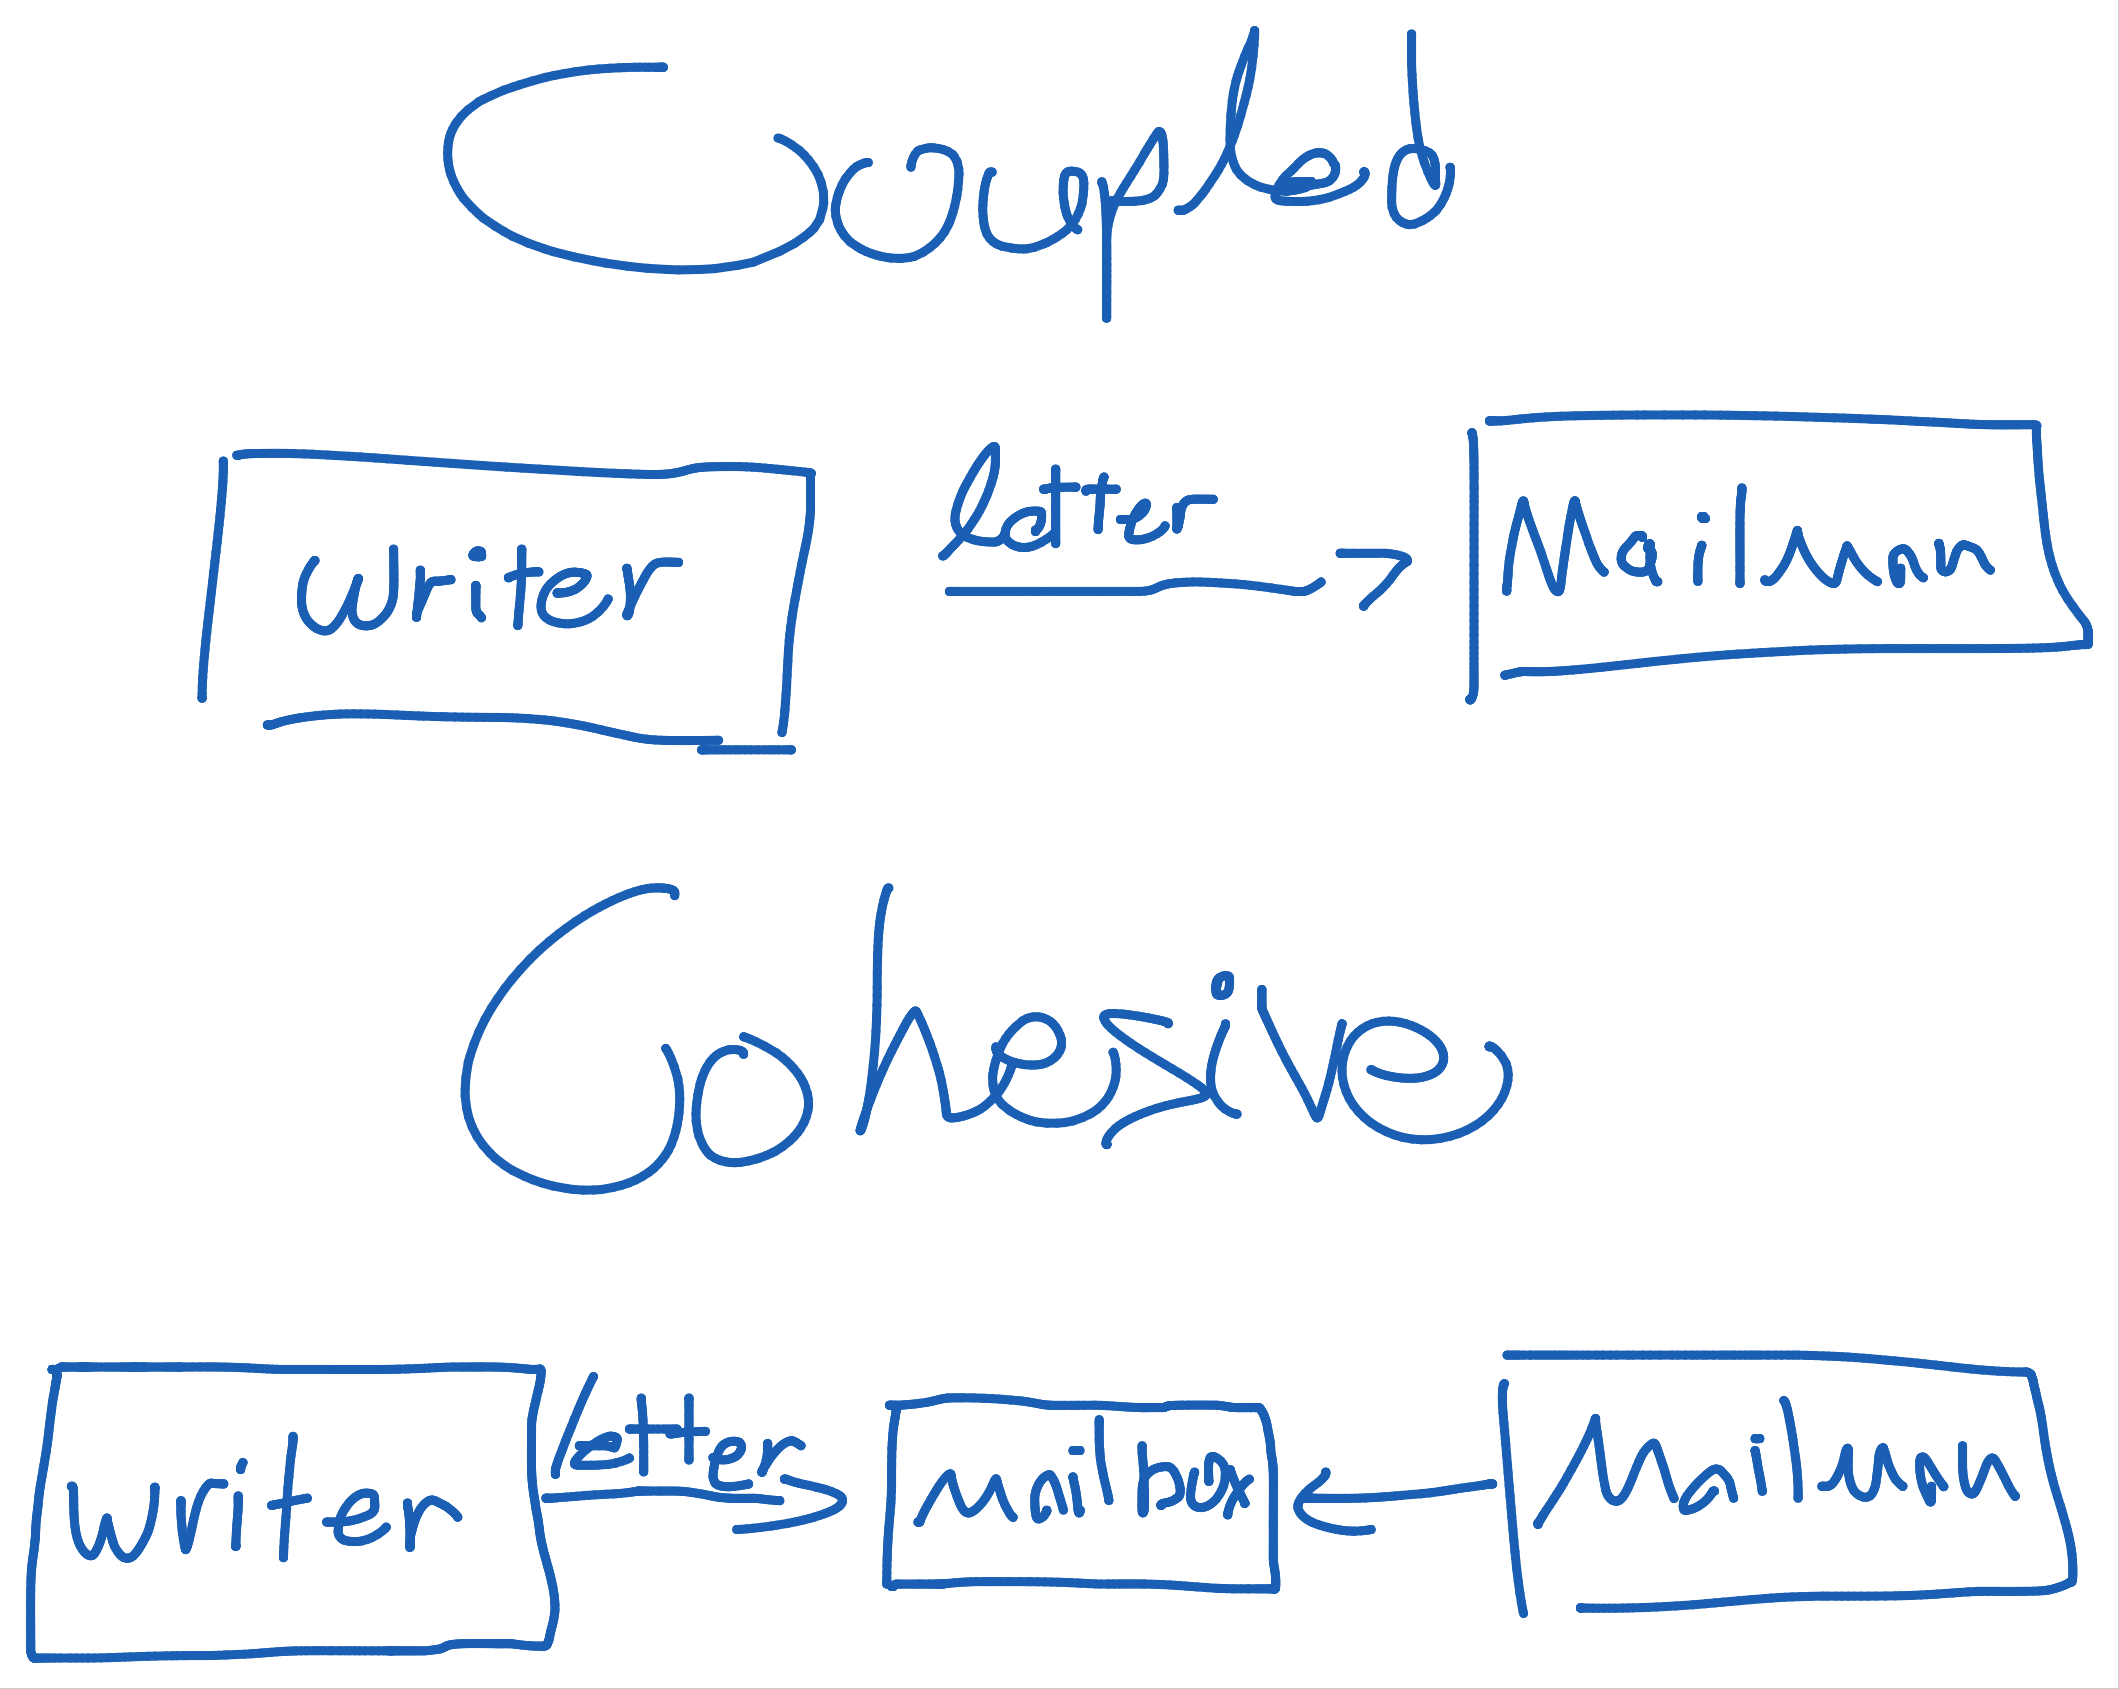 Coupled
letter
Writer Mailman
Cohesive
letter
Writer Mailbox Mailman